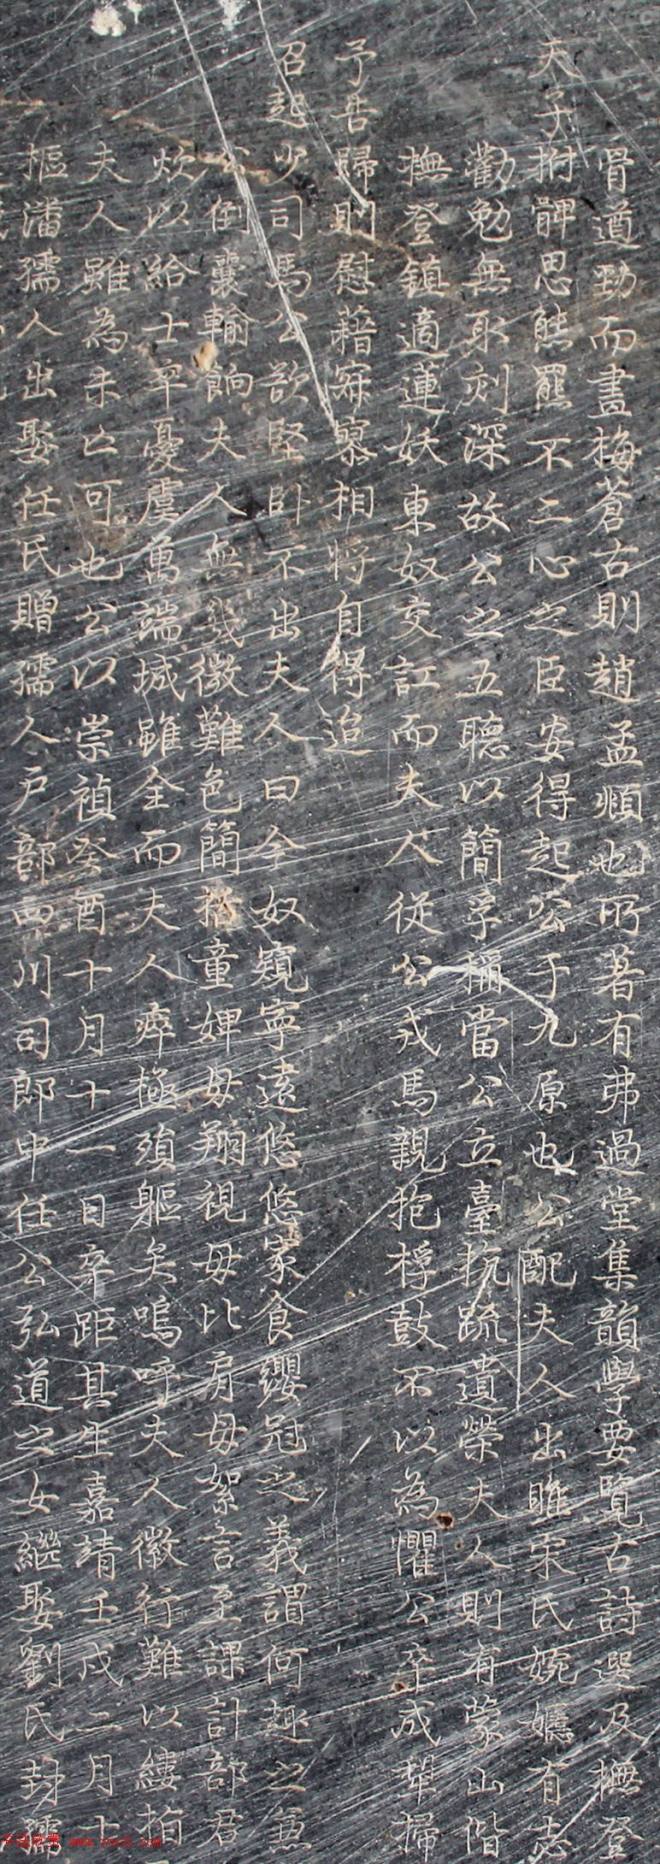 骨遒勁而畫梅蒼古則趙孟頫也所著有弗過堂集韻學要覽古詩選及撫登
天子拊髀思熊羆不二心之臣安得起公于九原也公配夫人出睢宋氏婉嫕有志
勸勉無取刻深故公之五聽以簡孚稱當公立臺抗疏遺榮夫人則有蒙山偕
撫登鎮適蓮妖東奴交訌而夫人從公戎馬親抱桴鼓不以為懼公卒成犁掃
予告歸則慰藉寂寥相將自得追
召起少司馬公欲堅卧不出夫人曰今奴窺寧遠悠悠家食纓冠之義謂何趣之兼
倒囊輸餉夫人無幾微難色簡童婢毋翔視毋比肩毋絮言至課計部君
炊以給士卒憂虞萬端城雖全而夫人瘁極殞軀矣嗚呼夫人徽行難以縷
夫人雖為未亡可也公以崇禎癸酉十月十一日卒距其生嘉靖壬戌二月十
樞潘孺人出娶任氏贈孺人戶部四川司郎中任公弘道之女繼娶劉氏封孺